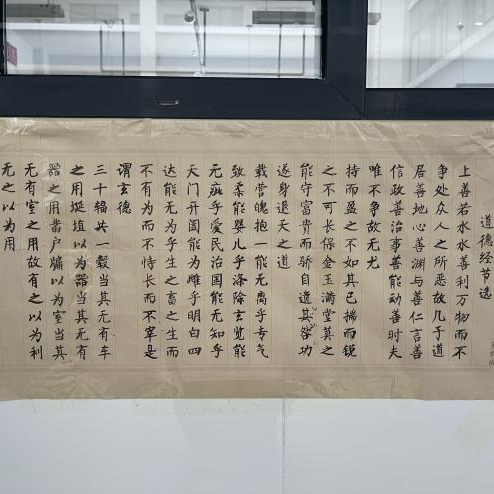 道德经节选
上善若水水善利万物而不
争处众人之所恶故几于道
居善地心善渊与善仁言善
信政善治事善能动善时夫
唯不争故无尤
持而盈之不如其已揣而锐
之不可长保金玉满堂莫之
能守富贵而骄自遗其咎功
遂身退天之道
载营魄抱一能无离乎专气
致柔能婴儿乎涤除玄览能
无疵乎爱民治国能无知乎
天门开阖能为雌乎明白四
达能无为乎生之畜之生而
不有为而不恃长而不宰是
谓玄德
三十辐共一毂当其无有车
之用埏埴以为器当其无有
器之用凿户牖以为室当其
无有室之用故有之以为利
无之以为用